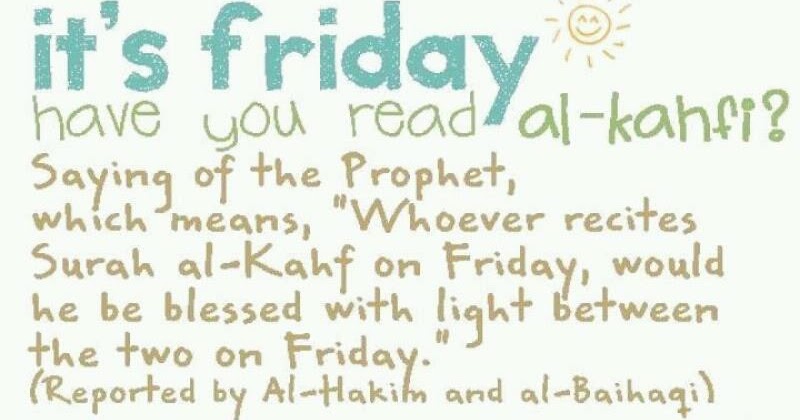 it's friday
have you read al-kahfi?
Saying of the Prophet,
which means, "Whoever recites
Surah al-Kahf on Friday, would
he be blessed with light between
the two on Friday."
(Reported by Al-Hakim and al-Baihaqi)